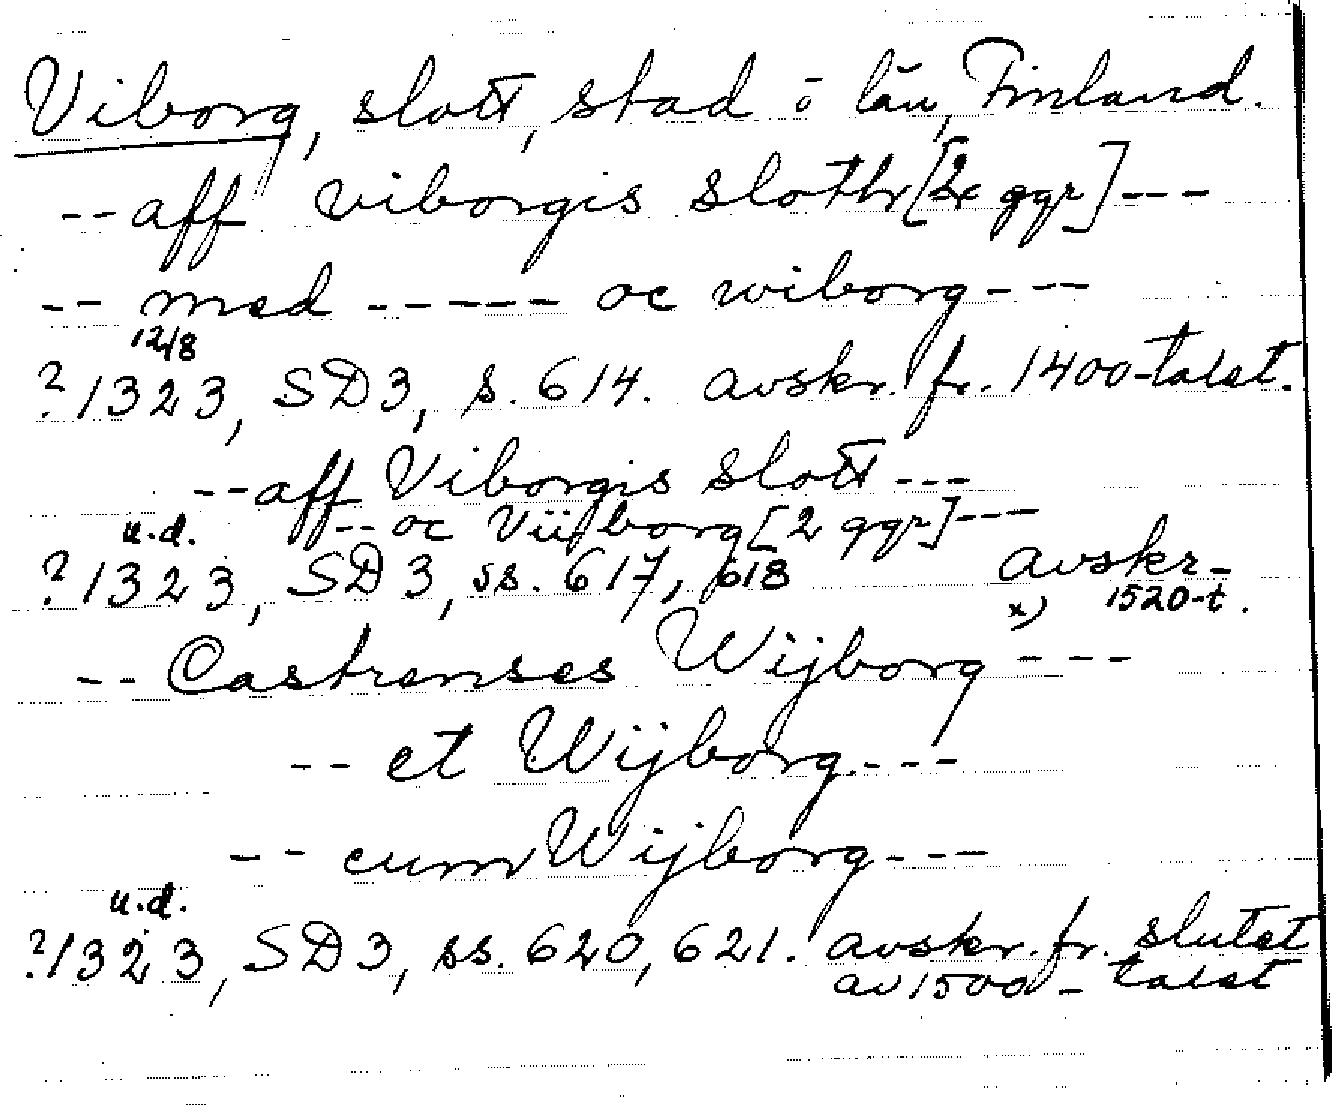 Viborg, slott, stad o län, Finland.
-- aff viborgis sloth [2 ggr] ---
-- med ----- oc wiborg ---
12/8
? 1323, SD3, s. 614. avskr. fr. 1400-talet.
-- aff Viborgis slott ---
-- oc Viijborg [2 ggr] ---
u.d.
? 1323, SD3, ss. 617, 618 avskr -
x) 1520-t.
-- Castrenses Wijborg ---
-- et Wijborg ---
-- cum Wijborg ---
u.d.
? 1323, SD3, ss. 620, 621. avskr. fr. slutet
av 1500-talet